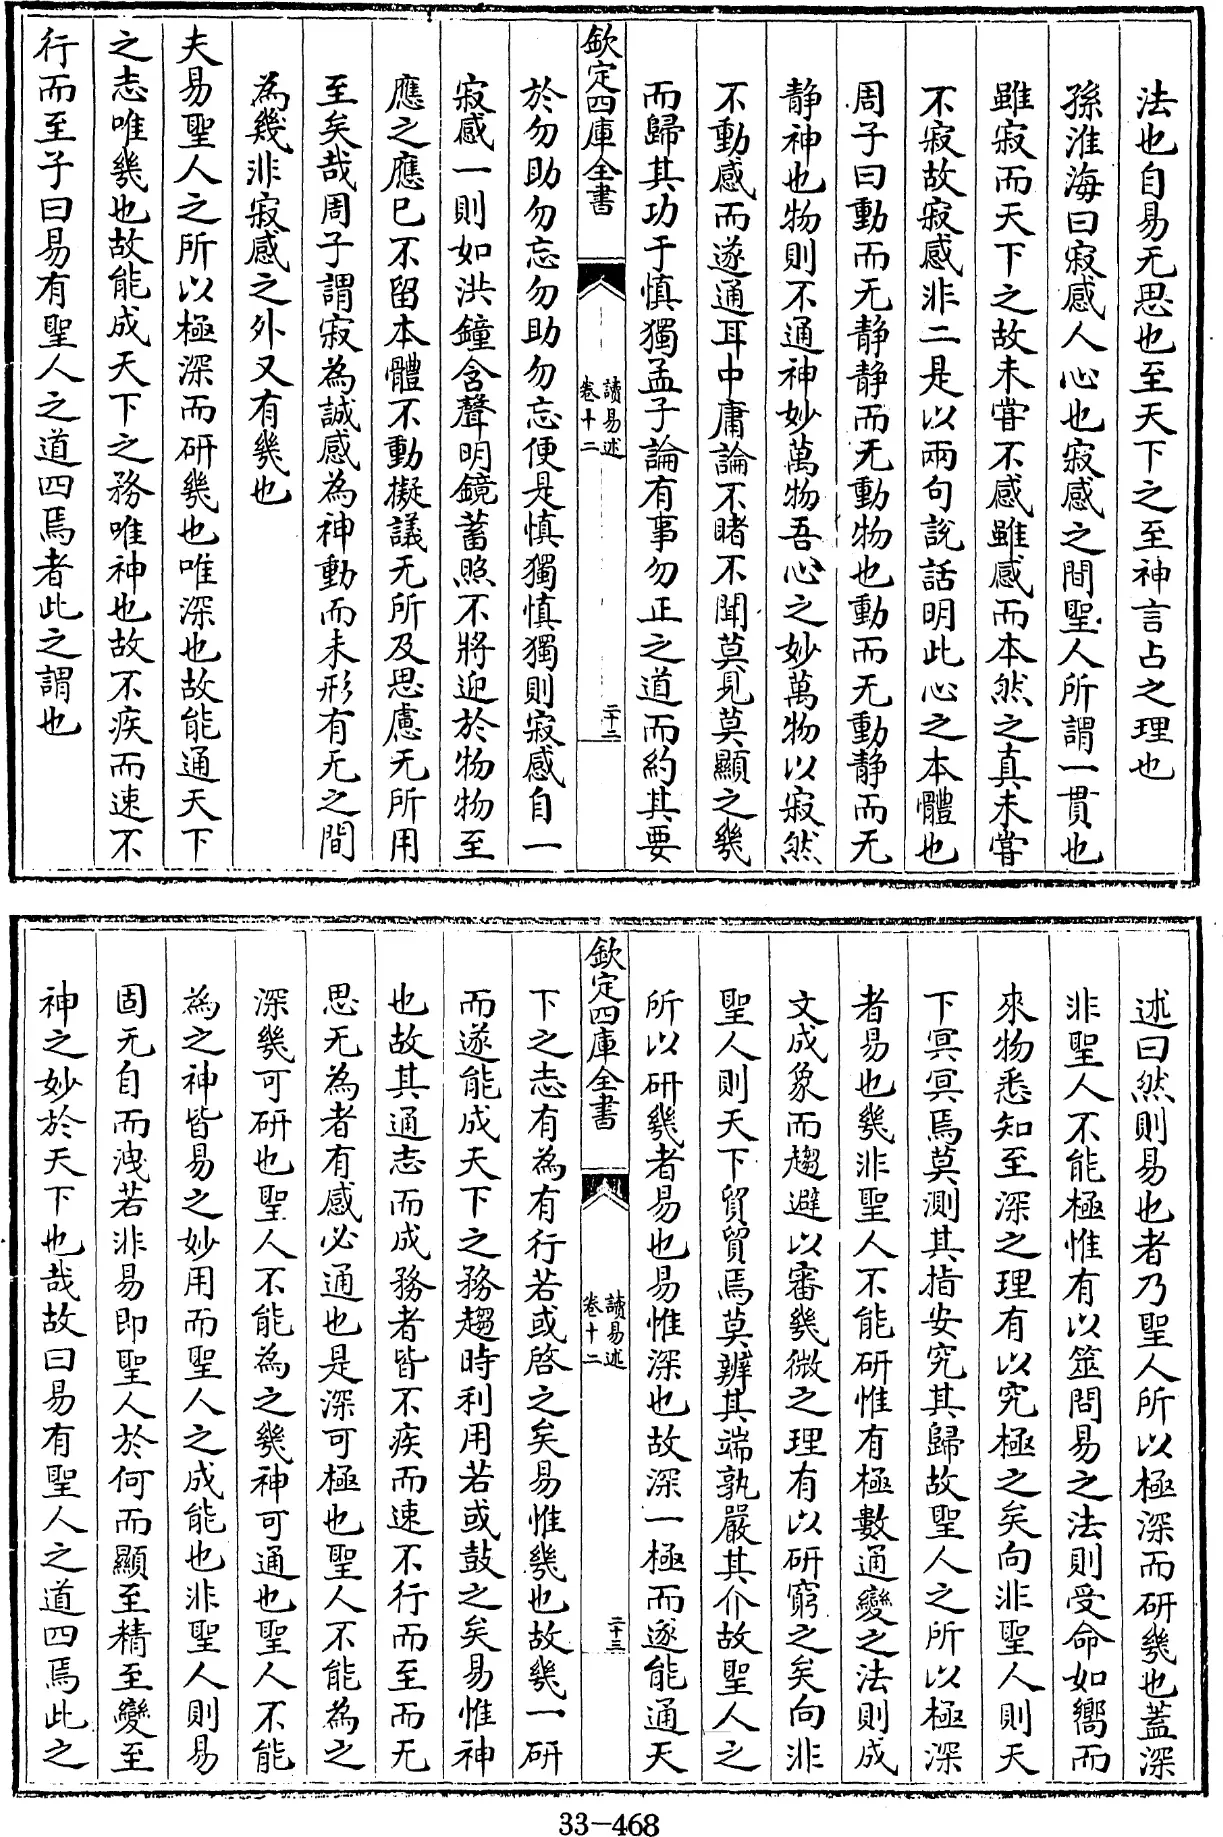 法也自易无思也至天下之至神言占之理也
孫淮海曰寂感人心也寂感之間聖人所謂一貫也
雖寂而天下之故未嘗不感雖感而本然之真未嘗
不寂故寂感非二是以兩句説話明此心之本體也
周子曰動而无静静而无動物也動而无動静而无
静神也物則不通神妙萬物吾心之妙萬物以寂然
不動感而遂通耳中庸論不睹不聞莫見莫顯之幾
而歸其功于慎獨孟子論有事勿正之道而約其要
欽定四庫全書
讀易述
卷十二
二十二
於勿助勿忘勿助勿忘便是慎獨慎獨則寂感自一
寂感一則如洪鐘含聲明鏡蓄照不將迎於物物至
應之應已不留本體不動擬議无所及思慮无所用
至矣哉周子謂寂為誠感為神動而未形有无之間
為幾非寂感之外又有幾也
夫易聖人之所以極深而研幾也唯深也故能通天下
之志唯幾也故能成天下之務唯神也故不疾而速不
行而至子曰易有聖人之道四焉者此之謂也
述曰然則易也者乃聖人所以極深而研幾也蓋深
非聖人不能極惟有以筮問易之法則受命如嚮而
來物悉知至深之理有以究極之矣向非聖人則天
下冥冥焉莫測其指安究其歸故聖人之所以極深
者易也幾非聖人不能研惟有極數通變之法則成
文成象而趨避以審幾微之理有以研窮之矣向非
聖人則天下貿貿焉莫辨其端孰嚴其介故聖人之
所以研幾者易也易惟深也故深一極而遂能通天
欽定四庫全書
讀易述
卷十二
二十三
下之志有為有行若或啓之矣易惟幾也故幾一研
而遂能成天下之務趨時利用若或鼓之矣易惟神
也故其通志而成務者皆不疾而速不行而至而无
思无為者有感必通也是深可極也聖人不能為之
深幾可研也聖人不能為之幾神可通也聖人不能
為之神皆易之妙用而聖人之成能也非聖人則易
固无自而洩若非易即聖人於何而顯至精至變至
神之妙於天下也哉故曰易有聖人之道四焉此之
33-468